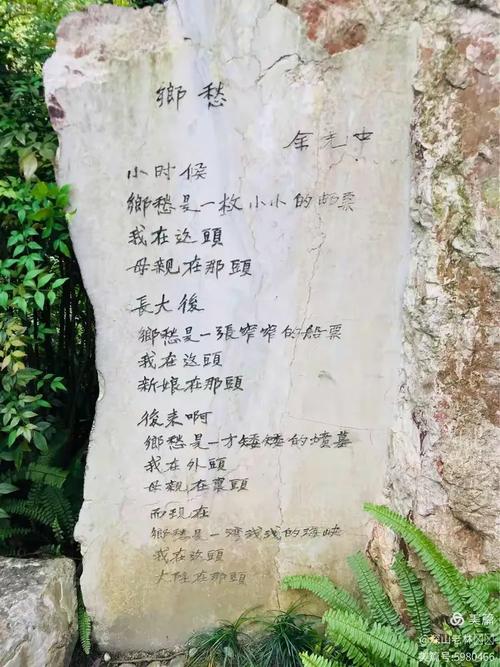 鄉愁
余光中
小时候
鄉愁是一枚小小的邮票
我在这頭
母親在那頭
長大後
鄉愁是一張窄窄的船票
我在这頭
新娘在那頭
後来啊
鄉愁是一方矮矮的墳墓
我在外頭
母親在裏頭
而现在
鄉愁是一湾浅浅的海峡
我在这頭
大陸在那頭
美篇
@深山老林冈冈
美篇号:5980466